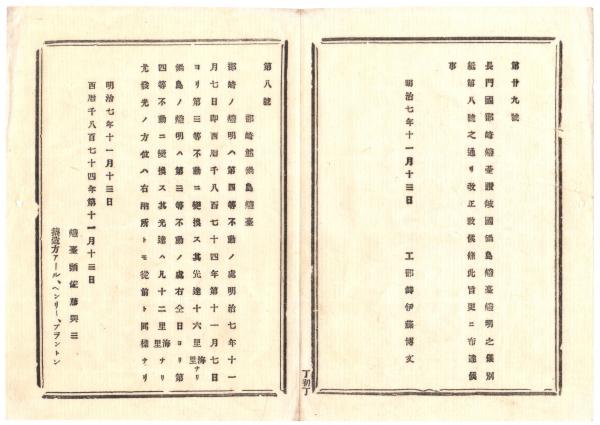 第廿九號
長門國部崎燈臺讃岐國鍋島燈臺燈明之儀別
紙第八號之通リ改正致候條此旨更ニ布達候
事
明治七年十一月十三日
工部卿伊藤博文
第八號
部崎並鍋島燈臺
部崎ノ燈明ハ第四等不動ノ處明治七年十一
月七日即西暦千八百七十四年第十一月七日
ヨリ第三等不動ニ變換ス其光達十六里海里ナリ
鍋島ノ燈明ハ第三等不動ノ處右仝日ヨリ第
四等不動ニ變換ス其光達ハ凡十二里海里ナリ
尤發光ノ方位ハ右兩所トモ從前ト同樣ナリ
明治七年十一月十三日
西暦千八百七十四年第十一月十三日
燈臺頭佐藤與三
築造方アール、ヘンリー、ブラントン